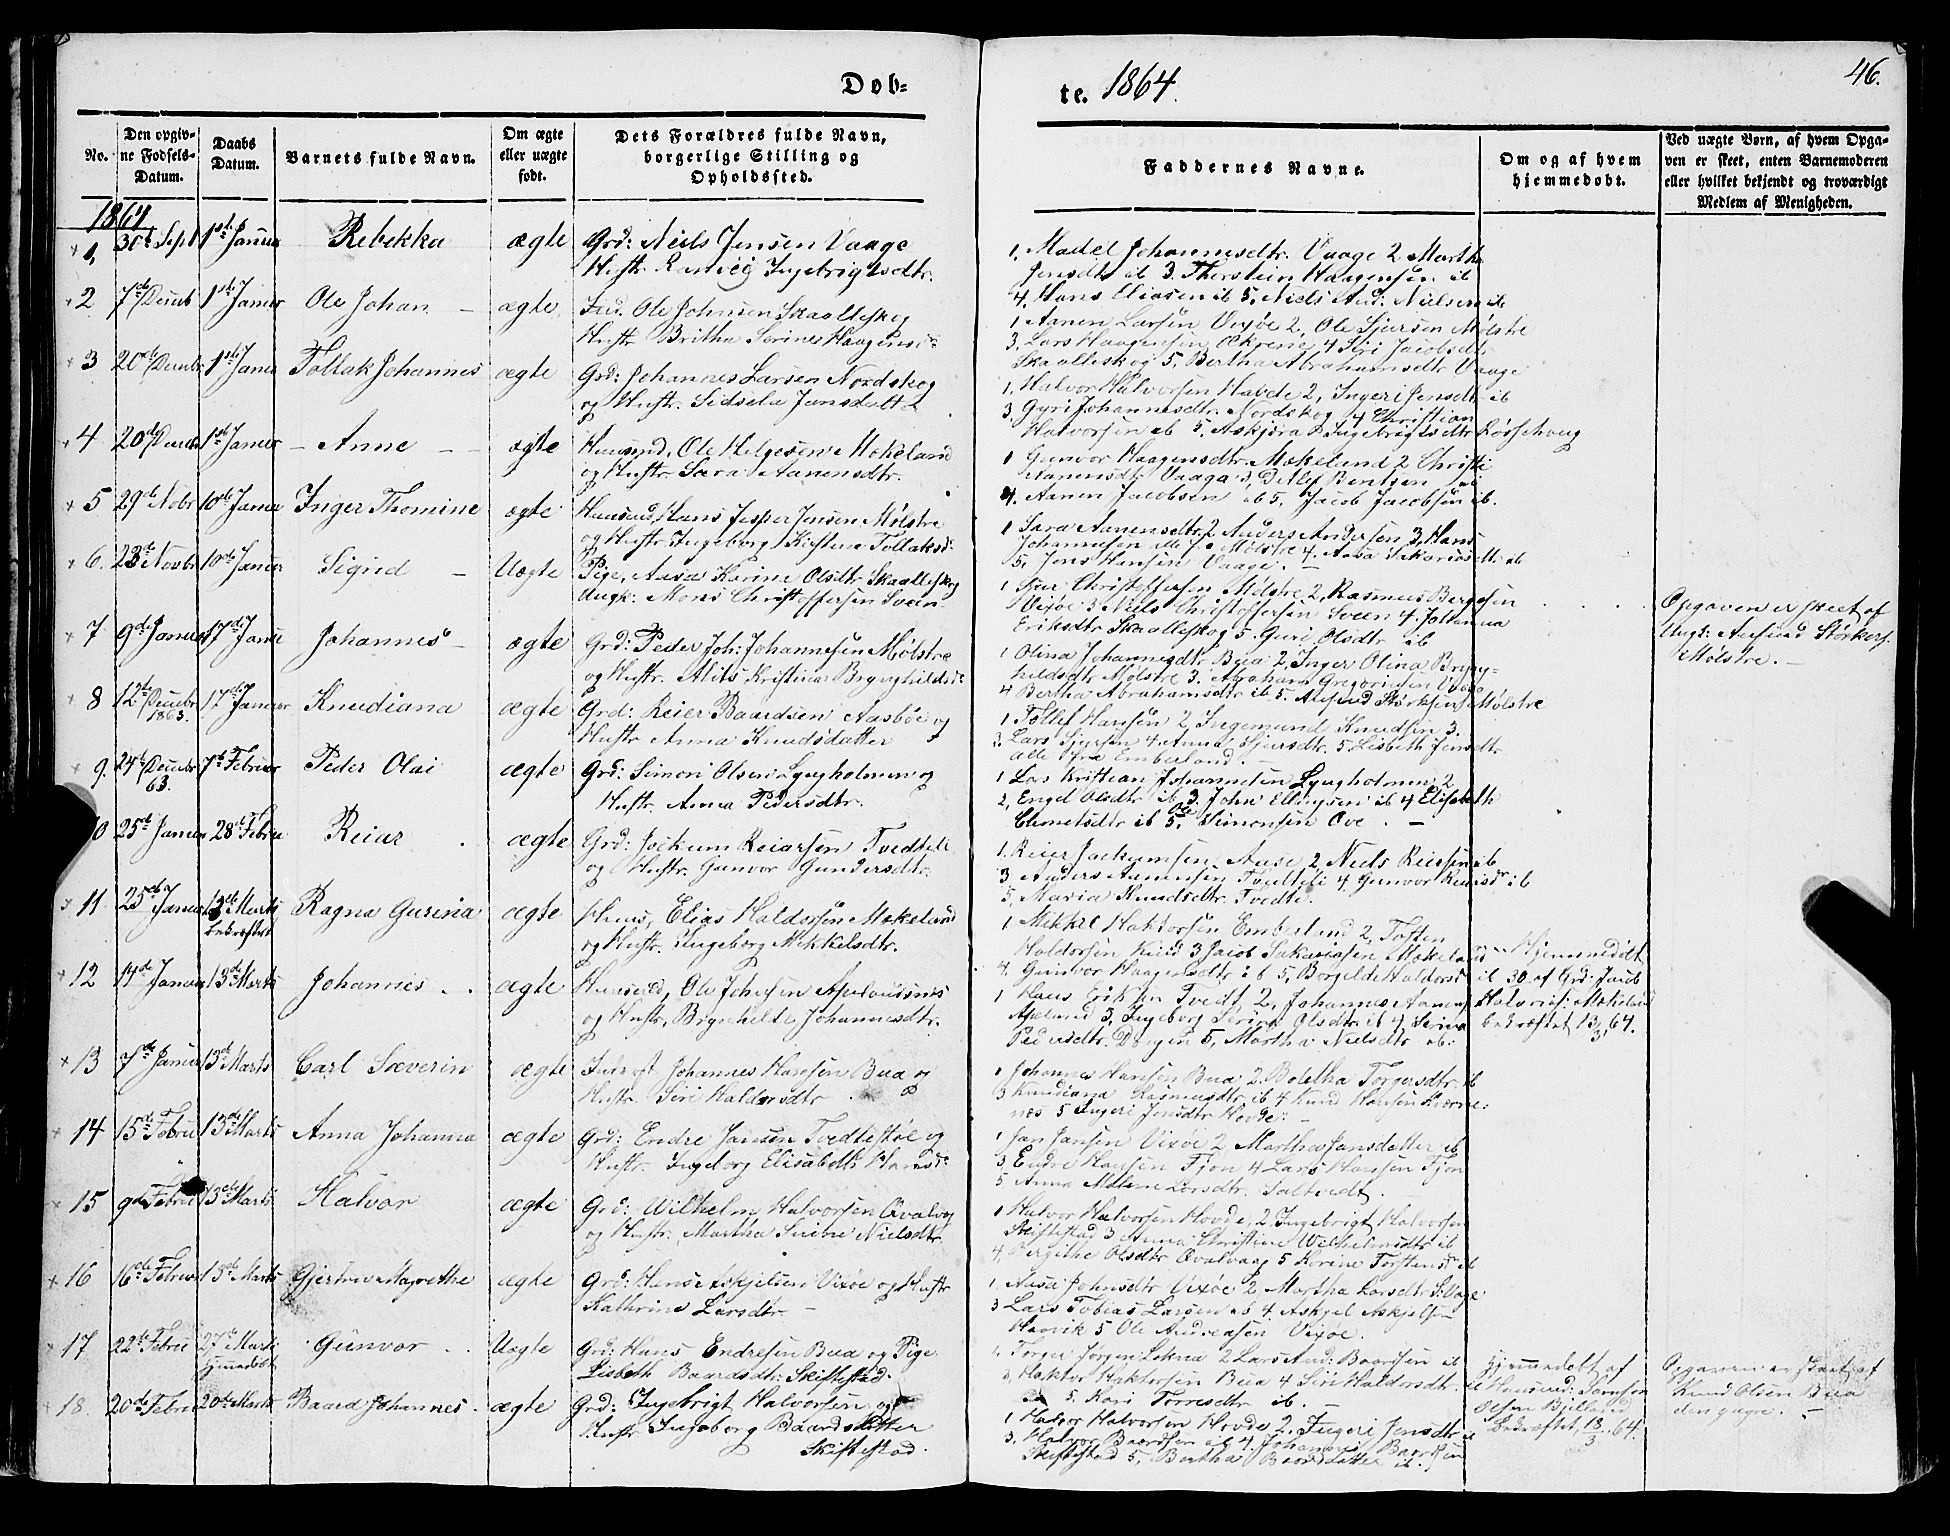 Døb=
te. 1864.
46.
No.
Den opgiv-
ne Fødsels-
Datum.
Daabs
Datum.
Barnets fulde Navn.
Om ægte
eller uægte
født.
Dets Forældres fulde Navn,
borgerlige Stilling og
Opholdssted.
Faddernes Navne.
Om og af hvem
hjemmedøbt.
Ved uægte Børn, af hvem Opga-
ven er skeet, enten Barnemoderen
eller hvilket bekjendt og troværdigt
Medlem af Menigheden.
1864
1, 30te Sept 1ste Januar Rebekka ægte Grd: Niels Jensen Vaage
Hustr. Ingebrigtsdtr.
1, Madel Johannesdtr. Vaage 2 Martha
Jensdtr ib 3. Thorstein Haagensen ib
4. Hans Eliasen ib 5, Niels And: Nielsen ib
2 7de Decmb 1ste Januar Ole Johan – ægte Ole Johnsen Skaalleskog
Hustr Britha Serine Haagensd:
1 Aanen Larsen Vixøe 2, Ole Sjursen Mølstre
3. Lars Haagensen Økrene 4 Siri Jacobsdtr
Skaalleskog 5, Bertha Abrahamsdtr Vaage
3 20de Decmbr 1ste Januar Tollak Johannes ægte Grd: Johannes Larsen Nordskog
og Hustr. Sidsela Jansdatt
1, Halvor Halvorsen Hovde 2, Ingeri Jensdtr ib
3 Gyri Johannesdtr. Nordskog 4 Christian
Halvorsen ib 5, Askjæra Ingebrigtsdtr
4 20de Decmbr 1ste Januar – Anne – – ægte Huusmd, Ole Helgesen Mokeland
og Hustr. Sara Aanensdtr.
1 Gunvor Haagensdtr. Mokeland 2 Christi
Aanensdtr Vaage 3, Detlef Bentsen ib
4. Aanen Jacobsen ib 5. Jacob Jacobsen ib.
5 29de Novbr 10de Januar Inger Thomine ægte Huusmd, Hans Jesper Jensen Mølstre
og Hustr. Ingeborg Kirstine Tollaksd:
1 Sara Aanensdtr. 2 Anders Andersen 3, Hans
Johannesen alle fra Mølstre 4. Aasa Sakariasdtr ib
5, Jens Hansen Vaage. –
6. 23de Novbr 10de Januar Sigrid – Uægte Pige, Aasa Karine Olsdtr Skaalleskog
Ungk: Mons Christoffersen Sveen
1 Sjur Christoffersen Mølstre 2, Rasmus Bergesen
Vixøe 3 Niels Christoffersen Sveen 4. Johanna
Eriksdtr Skaalleskog 5. Guri Olsdtr ib
Opgaven er skeet af
Ungk: Størkers.
Mølstre. –
7 9de Januar 17de Janu Johannes – ægte Grd: Peder Joh: Johannesen Mølstre
og Hustr. Kristina Brynhildsd:
1 Olina Johannesdtr Bua 2, Inger Olina Bryn-
hildsdtr Mølstre 3. Abraham Gregoriusen Vaage
4 Bertha Abrahamsdtr ib 5. Størksen Mølstre
8 12te Decmbr 1863. 17de Januar Knudiana ægte Grd: Reier Baardsen Aasbøe og
Hustr Anna Knudsdatter
1 Tollef Hansen 2 Ingemund Knudsen 3.
3. Lars Sjursen 4. Anna Sjursdtr. 5. Lisbeth Jensdtr
Alle fra Emberland. –
9. 24de Decmbr 63. 7de Februar Peder Olai ægte Grd: Simon Olsen Lyngholmen og
Hustr. Anna Pedersdtr.
1 Lars Kristian Johannesen Lyngholmen 2
2, Engel Olsdtr ib 3. John Ellingsen ib 4 Elisabeth
Clemetsdtr ib 5, Ole Simonsen Ove . –
0 25de Januar 28de Februa Reiar . ægte Grd: Jockum Reiarsen Tvedteli
og Hustr. Gunvor Gundersdtr.
1. Reier Jockumsen Aase 2 Niels Reiersen ib
3 Anders Aanensen Tvedteli 4. Gunvor Reiersdr ib
5, Maria Knudsdtr. Tvedte.
11 25de Januar 13de Marts bekræftet Ragna Gurina ægte Huus, Elias Haldorsen Mokeland
og Hustr. Ingeborg Mikkelsdtr.
1 Mikkel Haktorsen Emberland 2, Tosten
Haldorsen Knud 3 Jacob Sakariasen Mokeland
4. Gunvor Haagensdtr: ib 5, Borgilde Haldorsd:
Hjemmedøbt
30 af Grd: Jacob
Halvors: Mokeland
bekræftet 13/3 64.
12 14de Januar 13de Marts Johannes . . ægte Huusmd, Ole Johnsen
og Hustr, Brynhilde Johannesdtr.
1 Hans Eriksen Tvedt, 2, Johannes Aanens
Apeland 3, Ingeborg Serine Olsdtr ib 4, Serina
Pedersdtr. Dragen 5, Martha Nielsdtr ib:
13 7de Januar 13de Marts Carl Severin ægte Inderst Johannes Hansen Bua og
Hustr. Siri Haldorsdtr
1 Johannes Hansen Bua 2. Boletha Torgersdtr. ib
3 Knudiana Rasmusdtr. ib 4 Knud Hansen Kværne:
næs 5 Ingeri Jensdtr Hovde: –
14 15de Febru 13de Marts Anna Johanna ægte Grd: Endre Jansen Tvedtestøe og
Hustr. Ingeborg Elisabeth Hansd:
1 Jan Jansen Vixøe 2 Martha Jansdatter ib
3 Endre Hansen Tjon 4 Lars Hansen Tjon
5 Anna Malene Larsdtr. Saltvedt.
15 9de Febru 13de Marts Halvor ægte Grd: Wilhelm Halvorsen Qvalvog
og Hustr: Martha Serine Nielsdtr
1 Halvor Halvorsen Hovde, 2, Ingebrigt Halvorsen
Skiftestad 3 Anna Christine Wilhelmsdtr ib
4, Bergithe Olsdtr Qvalvaag 5 Korine Torstensd: ib
16 16de Februar 13de Marts Gjertru Magrethe ægte Grd: Hans Askjelsen Vixøe og Hustr
Kathrine Larsdtr. –
1, Aasa Johnsdtr Vixøe 2 Martha Larsdtr
3 Lars Tobias Larsen ib 4. Askjel Askjelsen
Haavik 5 Ole Andreasen Vixøe.
17 22de Febru 27de Marts hjemmedøbt Gunvor . . Uægte Grd: Hans Endresen Bua og Pige
Lisbeth Baardsdtr. Skiftestad.
1, Torger Jørgen Lokna 2 Lars And: Baardsen ib
3, Haktor Haktorsen Bua 4 Siri Haldorsdtr.
5. Kari Torresdtr ib. –
hjemmedøbt af
Huusmd:
Olsen
bekræftet, 13/3 64.
Opgaven er skeet af
Knud Olsen Bua
–
18. 20de Febru 20de Marts Baard Johannes. ægte Grd: Ingebrigt Halvorsen og
Hustr Ingeborg Baardsdatter
Skiftestad.
1 Halvor Halvorsen Hovde 2. Ingeri Jensdtr ib
3. Halvor Baardsen ib 4. Johannes Baardsen
Skiftestad 5, Bertha Baardsdatter ib.